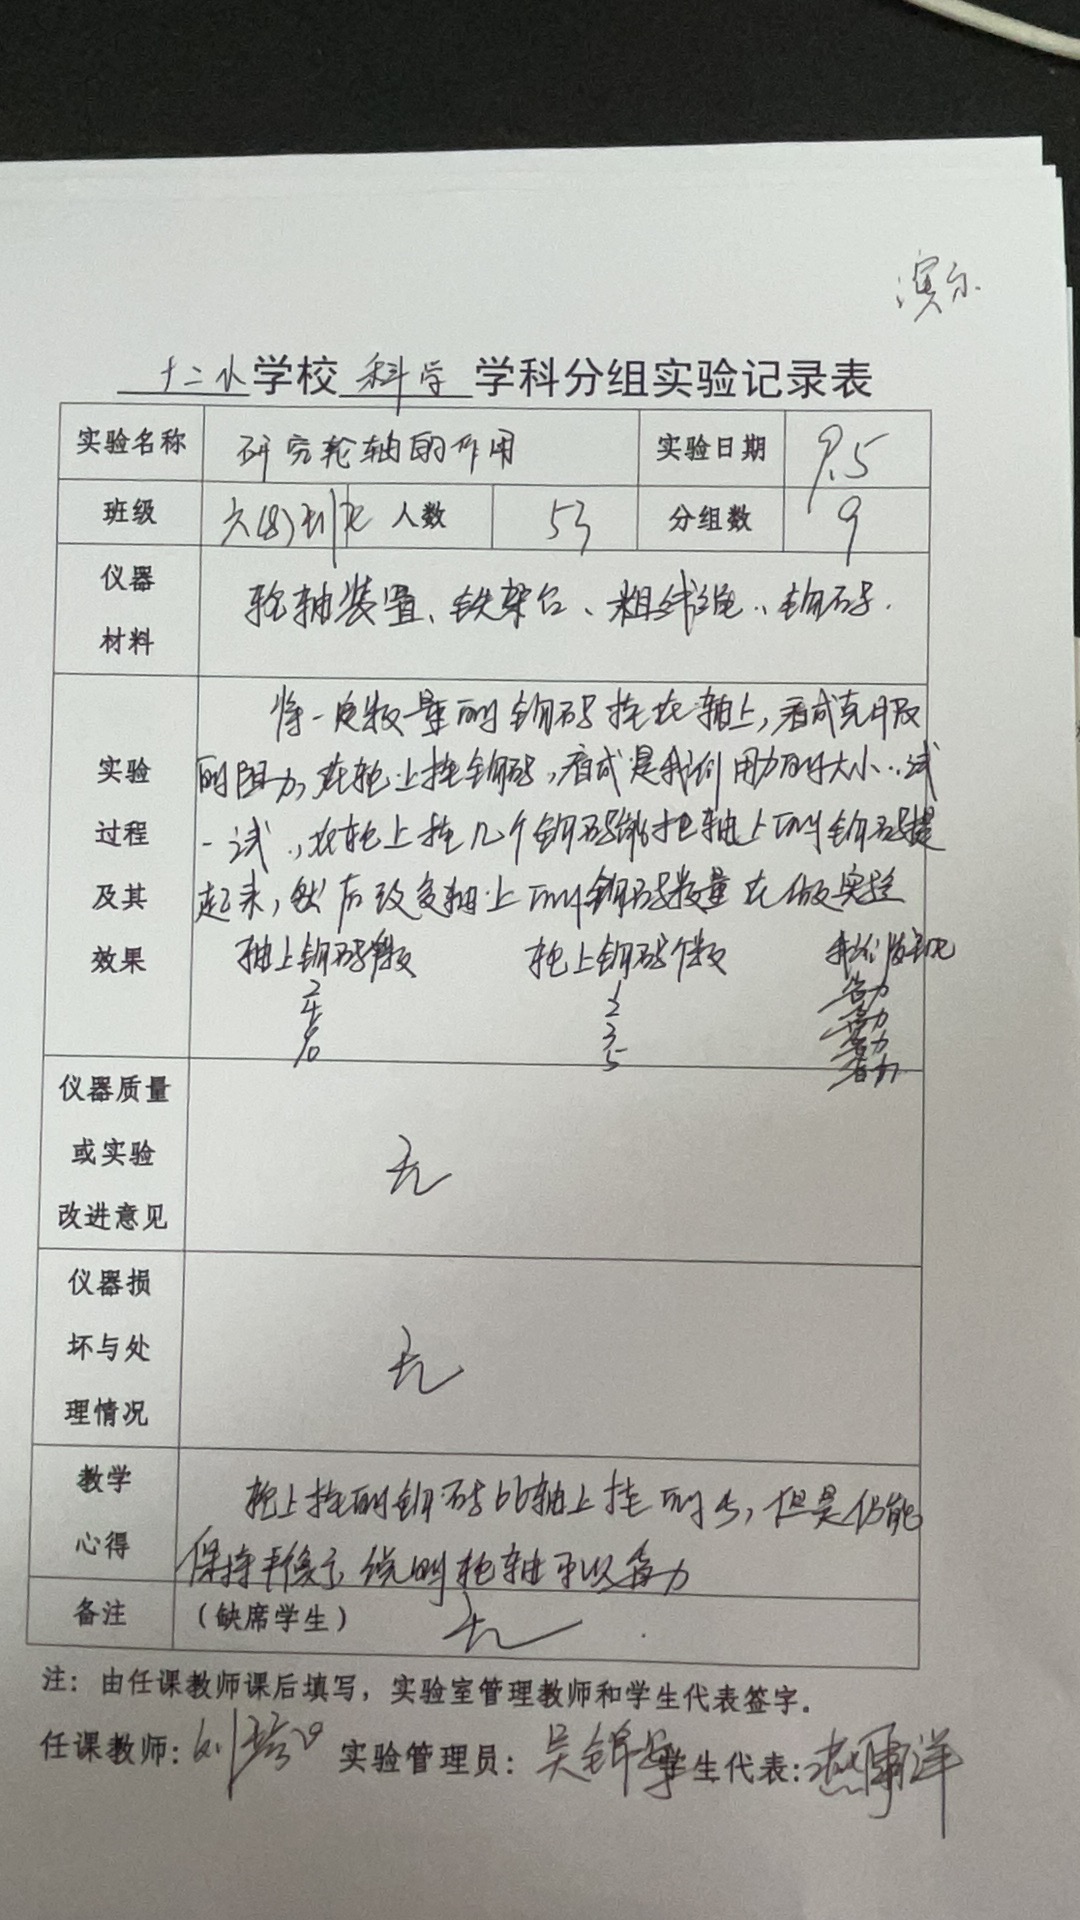 演示
十二小学校 科学 学科分组实验记录表
实验名称 研究轮轴的作用 实验日期 9.5
班级 六(8) 人数 53 分组数 9
仪器材料 轮轴装置、铁架台、粗线绳、钩码.
实验过程及其效果
将一定数量的钩码挂在轴上,看成克服
的阻力,在轮上挂钩码,看成是我们用力的大小.试
一试,在轮上挂几个钩码能把轴上的钩码提
起来,然后改变轴上的钩码数量在做实验
轴上钩码个数 轮上钩码个数 我们发现
2 1 省力
4 2 省力
6 3 省力
10 5 省力
仪器质量或实验改进意见 无
仪器损坏与处理情况 无
教学心得
轮上挂的钩码比轴上挂的少,但是仍能
保持平衡,说明轮轴可以省力
备注 (缺席学生) 无
注:由任课教师课后填写,实验室管理教师和学生代表签字。
任课教师: 刘 实验管理员: 吴锦 学生代表: 洋